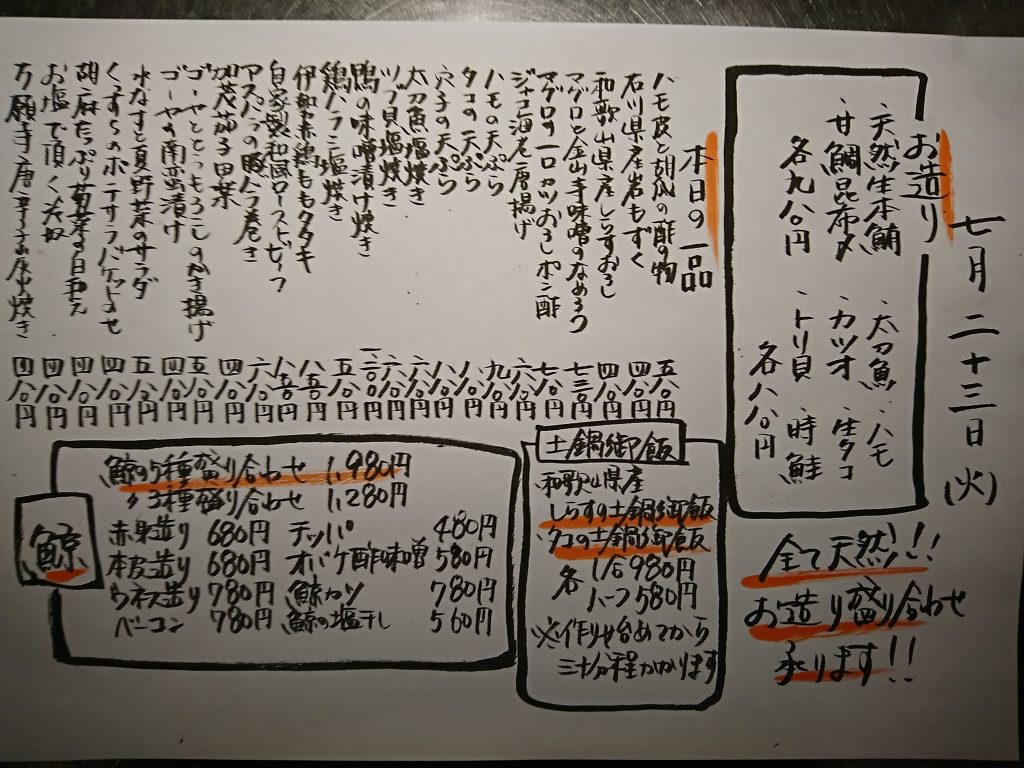 七月二十三日(火)
お造り
・天然生本鮪 ・太刀魚 ・ハモ
・甘鯛昆布〆 ・カツオ ・生タコ
各九八〇円 ・トリ貝 ・時鮭
各八八〇円
全て天然!!
お造り盛り合わせ
承ります!!
本日の一品
ハモ皮と胡瓜の酢の物 五八〇円
石川県産岩もずく 四八〇円
和歌山県産しらすおろし 四八〇円
マグロと金山寺味噌のなめろう 七三〇円
マグロの一口カツおろしポン酢 七八〇円
ジャコ海老唐揚げ 六八〇円
ハモの天ぷら 九八〇円
タコの天ぷら 八八〇円
穴子の天ぷら 八八〇円
太刀魚塩焼き 六八〇円
ツブ貝塩焼き 六八〇円
鴨の味噌漬け焼き 一二〇〇円
鶏ハラミ塩焼き 五八〇円
伊勢赤鶏ももタタキ 八五〇円
自家製和風ローストビーフ 八五〇円
アスパラの豚バラ巻き 六八〇円
加茂茄子田楽 四八〇円
ゴーヤととうもろこしのかき揚げ 五八〇円
ゴーヤの南蛮漬け 四八〇円
水なすと夏野菜のサラダ 五八〇円
ポテサラバゲットのせ 四八〇円
胡麻たっぷり菊菜の白和え 四八〇円
お塩で頂く冷奴 四八〇円
万願寺唐辛子の炭火焼き 四八〇円
土鍋御飯
和歌山県産
しらすの土鍋御飯
タコの土鍋御飯
各 1合980円
ハーフ580円
※作り始めてから
三十分程かかります
鯨
鯨の5種盛り合わせ 1,980円
〃3種盛り合わせ 1,280円
赤身造り 680円 テッパ 480円
本皮造り 680円 オバケ酢味噌 580円
ウネス造り 780円 鯨カツ 780円
ベーコン 780円 鯨の塩干し 560円